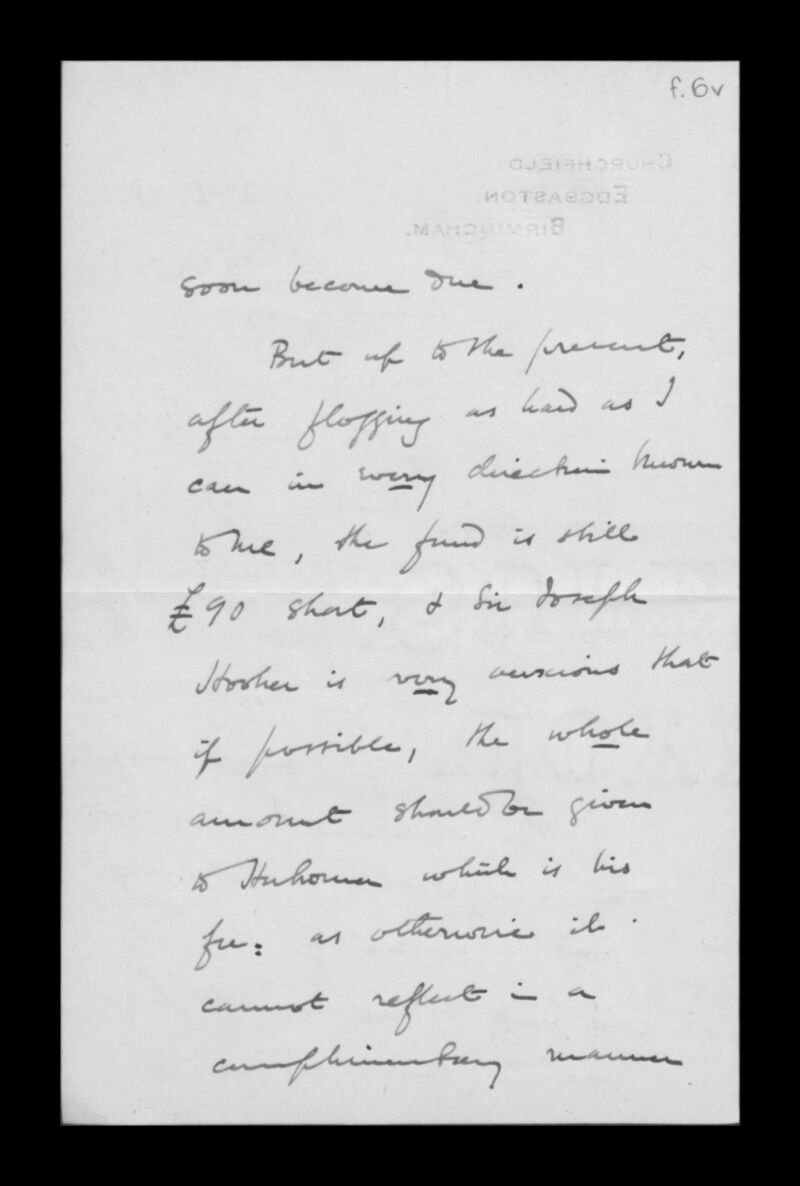 f.6v
CHURCHFIELD
EDGBASTON
BIRMINGHAM.
soon become due.
But up to the present,
after flogging as hard as I
can in every direction known
to me, the fund is still
£90 short, & Sir Joseph
Hooker is very anxious that
if possible, the whole
amount should be given
to Herkomer which is his
fee: as otherwise it
cannot reflect in a
complimentary manner